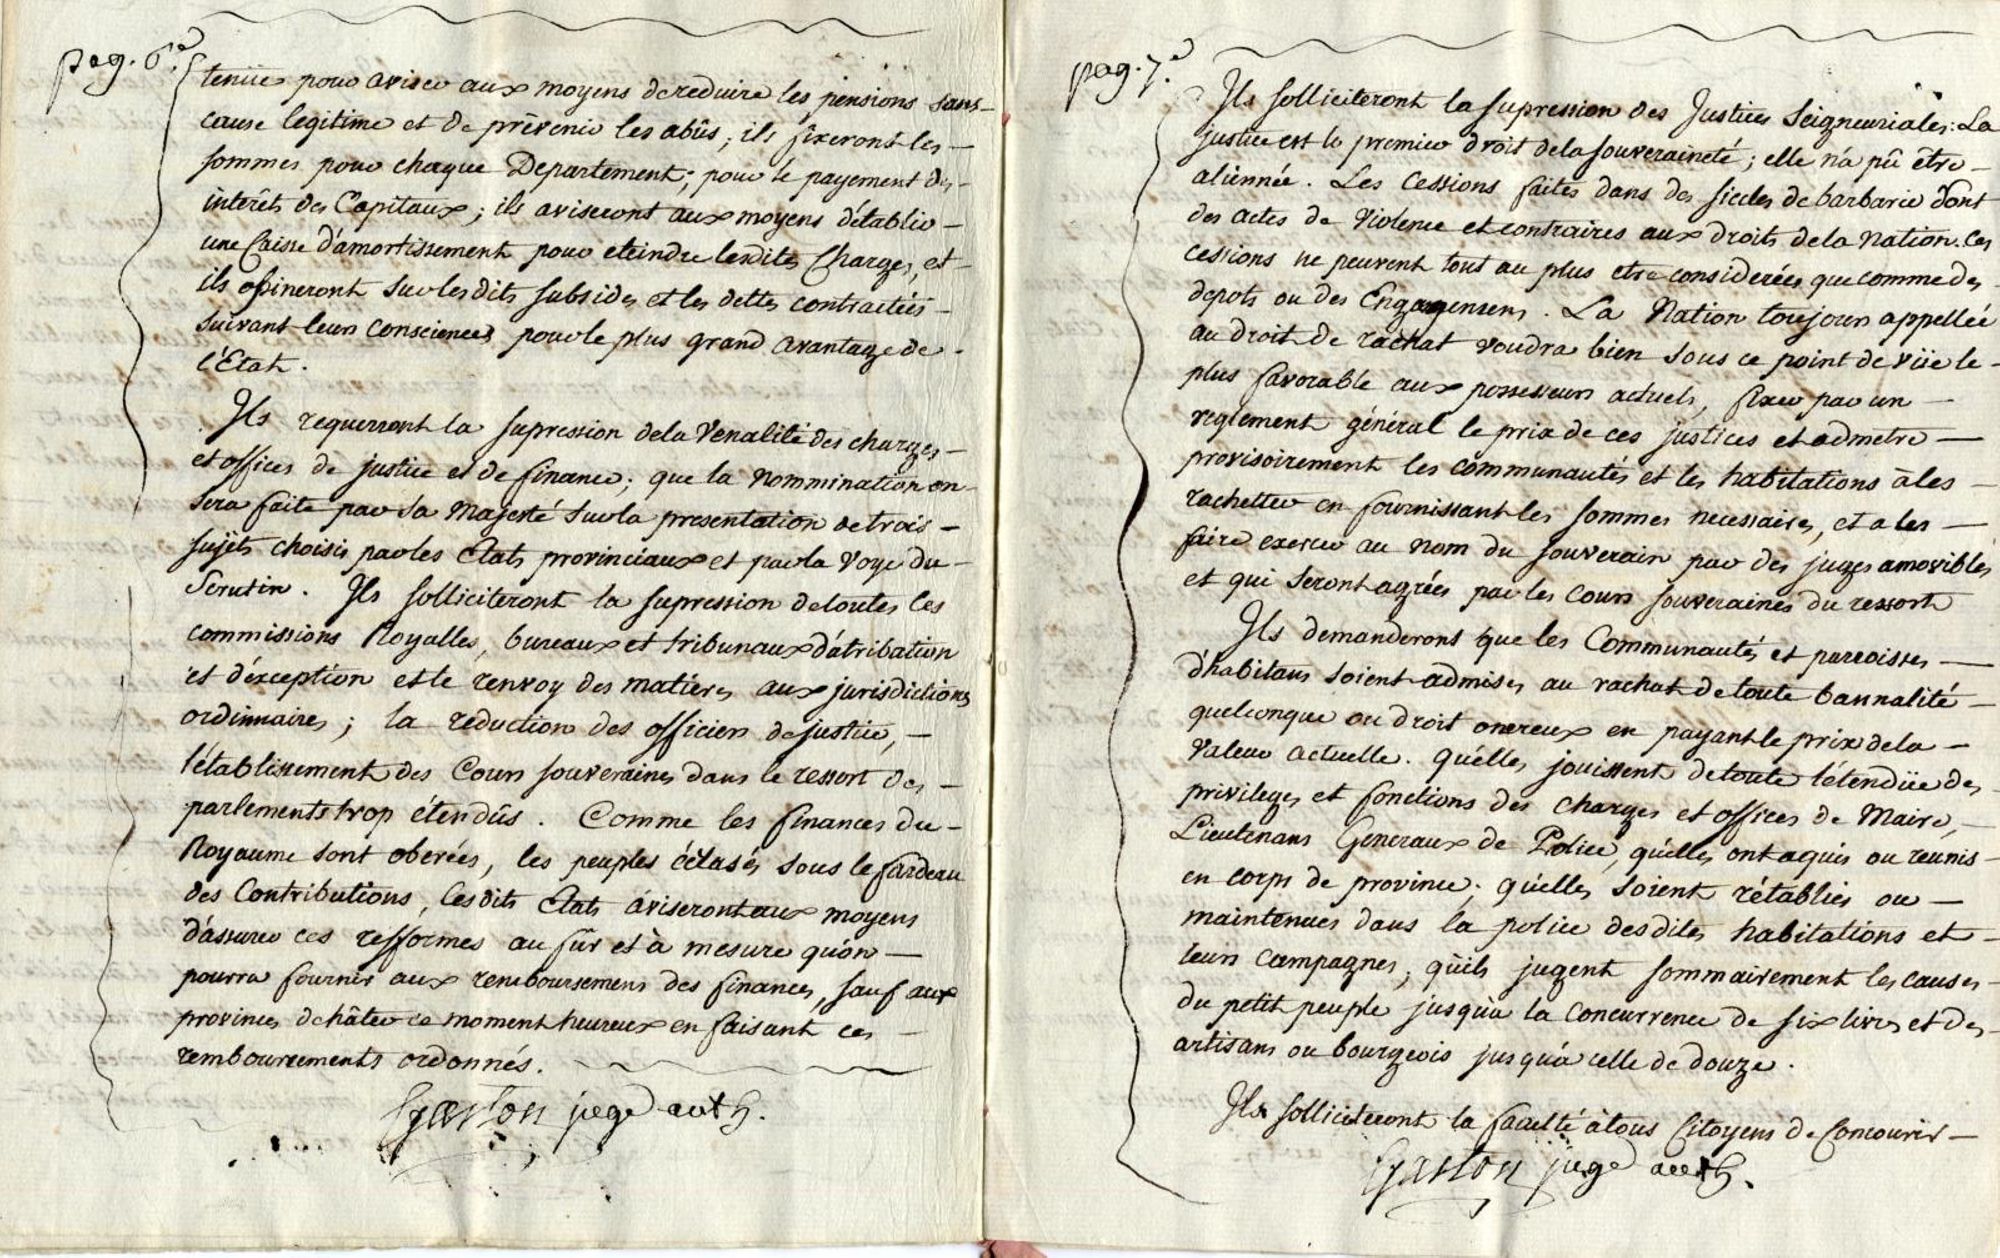 pag. 6.e
tenüe pour aviser aux moyens de reduire les pensions sans
cause legitime et de prêvenir les abûs; ils fixeront les
sommes pour chaque Departement; pour le payement des
interêts des Capitaux; ils aviseront aux moyens d'établir
une Caisse d'amortissement pour eteindre lesdites Charges, et
ils opineront sur lesdits subsides et les dettes contractées
suivant leurs consciences pour le plus grand avantage de
l'Etat.
Ils requerront la supression de la Venalité des charges
et offices de justice et de finance; que la nommination en
sera faite par sa Majesté sur la presentation de trois
sujets choisis par les Etats provinciaux et par la Voye du
Scrutin. Ils solliciteront la supression de toutes les
commissions Royalles, bureaux et tribunaux d'atribation
et d'éxception et le renvoy des matieres aux jurisdictions
ordinnaires; la reduction des officiers de justice,
l'établissement des Cours souveraines dans le ressort des
parlements trop étendûs. Comme les finances du
Royaume sont oberées, les peuples éclasés sous le fardeau
des Contributions, lesdits Etats áviseront aux moyens
d'assurer ces refformes au fûr et à mesure qu'on
pourra fournir aux remboursemens des finances, sauf aux
provinces d'hâter ce moment heureux en faisant ces
remboursements ordonnés.
Gaston juge auth.
pag. 7.e
Ils solliciteront la supression des Justices Seigneuriales: La
justice est le premier droit de la souveraineté; elle n'a pû être
aliénnée. Les Cessions faites dans des siecles de barbarie dont
des actes de Violence et contraires aux droits de la Nation. Ces
cessions ne peuvent tout au plus etre considerées que comme des
depots ou des Engagemens. La Nation toujours appellée
au droit de rachat voudra bien sous ce point de vüe le
plus favorable aux possesseurs actuels, fixer par un
reglement général le prix de ces justices et admetre
provisoirement les communautés et les habitations à les
rachetter en fournissant les sommes necessaires, et a les
faire exercer au nom du souverain par des juges amovibles
et qui seront agrées par les Cours souveraines du ressort
Ils demanderont que les Communautés et parroisses
d'habitans soient admises au rachat de toute bannalité
quelconque ou droit onereux en payant le prix de la
Valeur actuelle. qu'elles jouissent de toute l'étendüe des
privileges et fonctions des charges et offices de Maire,
Lieutenans Generaux de Police, qu'elles ont aquis ou reunis
en corps de province; qu'elles soient rétablies ou
maintenues dans la police desdites habitations et
leurs Campagnes; qu'ils jugent sommairement les causes
du petit peuple jusqu'à la Concurrence de six livres et des
artisans ou bourgeois jusqu'à celle de douze.
Ils solliciteront la faculté à tous Citoyens de Concourir
Gaston juge auth.